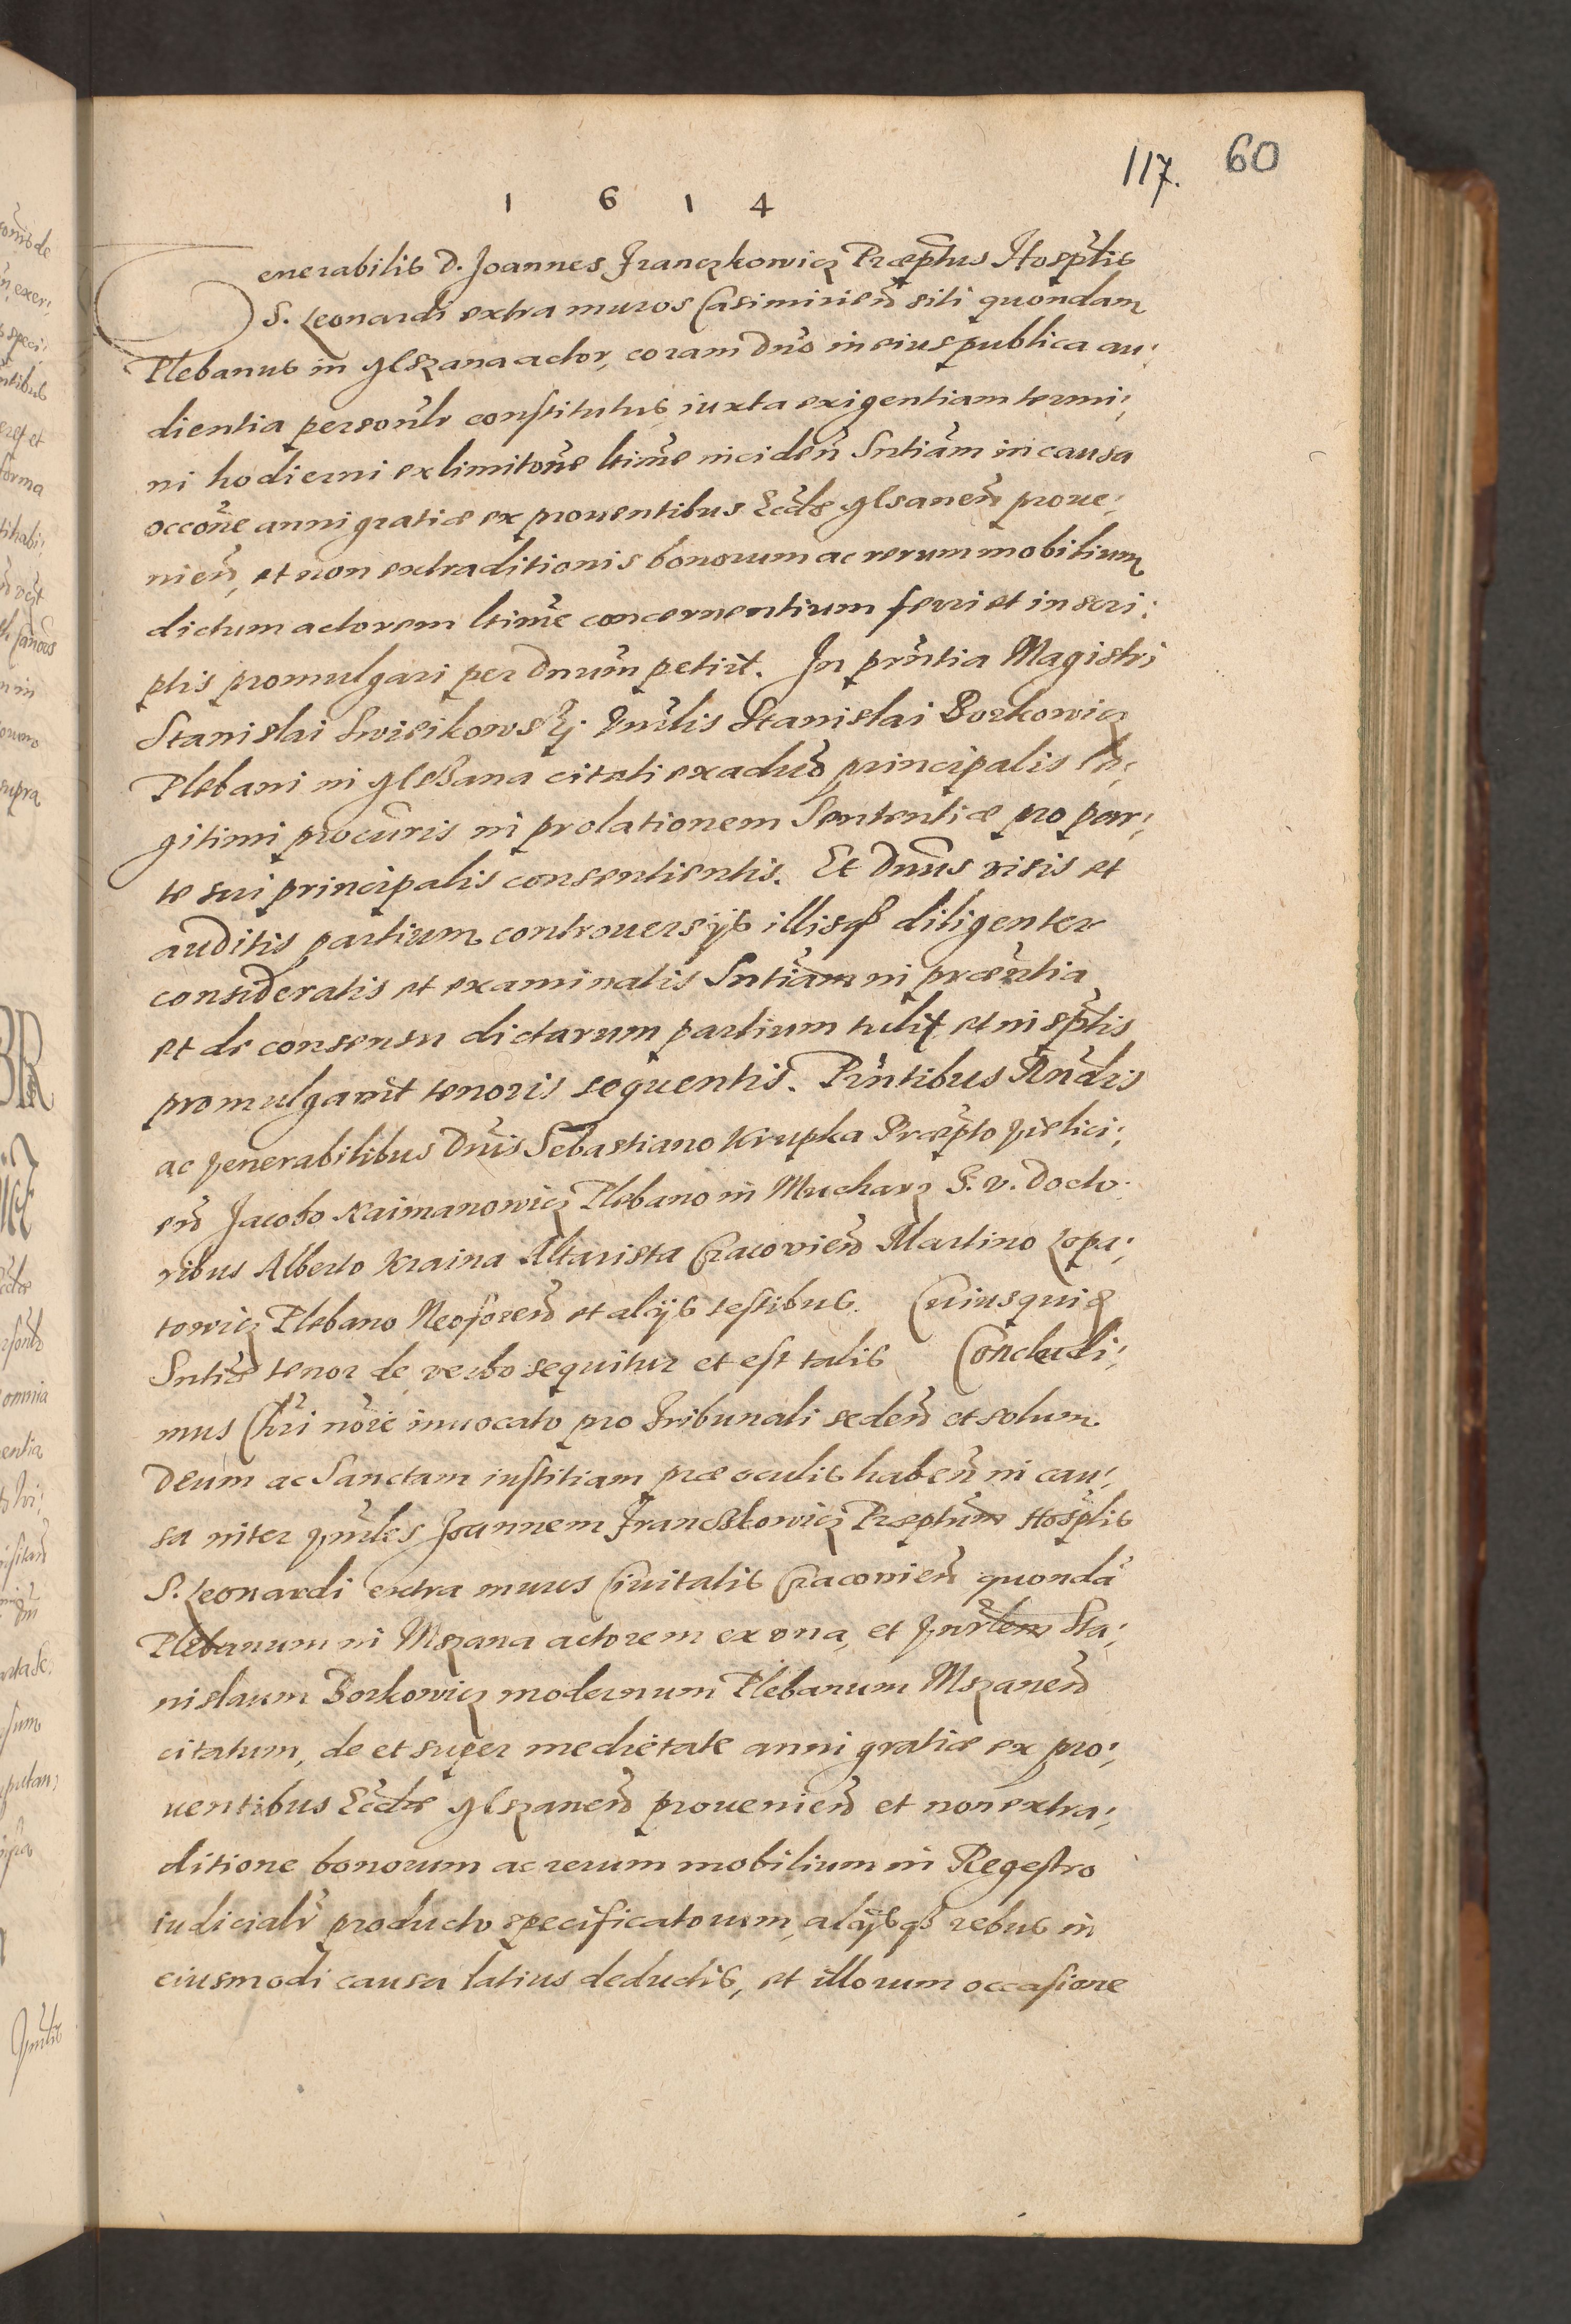 117. 60
1 6 1 4
Venerabilis D. Joannes Franczkowicz Præptus Hosptlis
S. Leonardi extra muros Casimirien siti quondam
Plebanus in Mszana actor, coram Dno in eius publica au:
dientia personlr constitutus, iuxta exigentiam termi:
ni hodierni ex limitone ltime inciden Sntiam in causa
occone anni gratiæ ex prouentibus Eccliæ Msanen proue:
nien, et non extraditionis bonorum ac rerum mobilium
dictum actorem ltime concernentium ferri et in scri:
ptis promulgari per Dnum petiit. In prntia Magistri
Stanislai Swisikowskij Vnrlis Stanislai Borkowicz
Plebani in Mszana citati ex aduo principalis le:
gitimi procuris in prolationem Sententiæ pro par:
te sui principalis consentientis. Et Dnus visis et
auditis partium controuersijs illisq diligenter
consideratis et examinatis Sntiam in præntia
et de consensu dictarum partium tulit et in sptis
promulgauit tenoris sequentis. Prntibus Rndis
ac Venerabilibus Dnis Sebastiano Krupka Præpto Vielici:
en Jacobo Kaimanowicz Plebano in Mucharz S. V. Docto
ribus Alberto Kraina Altarista Cracovien Martino Lopa:
towicz Plebano Neoforen et alijs testibus. Cuiusquid
Sntiæ tenor de verbo sequitur et est talis Concludi:
mus Chri noie inuocato pro Tribunali seden et solum
Deum ac Sanctam iustitiam præ oculis haben in cau:
sa inter Vnrles Joannem Franczkowicz Præptum Hosplis
S. Leonardi extra muros Ciuitatis Cracouien quonda
Plebanum in Mszana actorem ex vna, et Vnrlem Sta:
nislaum Borkowicz modernum Plebanum Mszanen
citatum, de et super medietate anni gratiæ ex pro:
uentibus Eccliæ Mszanen prouenien et non extra:
ditione bonorum ac rerum mobilium in Regestro
iudicialr producto specificatorum, alijsq rebus in
eiusmodi causa latius deductis, et illorum occasione